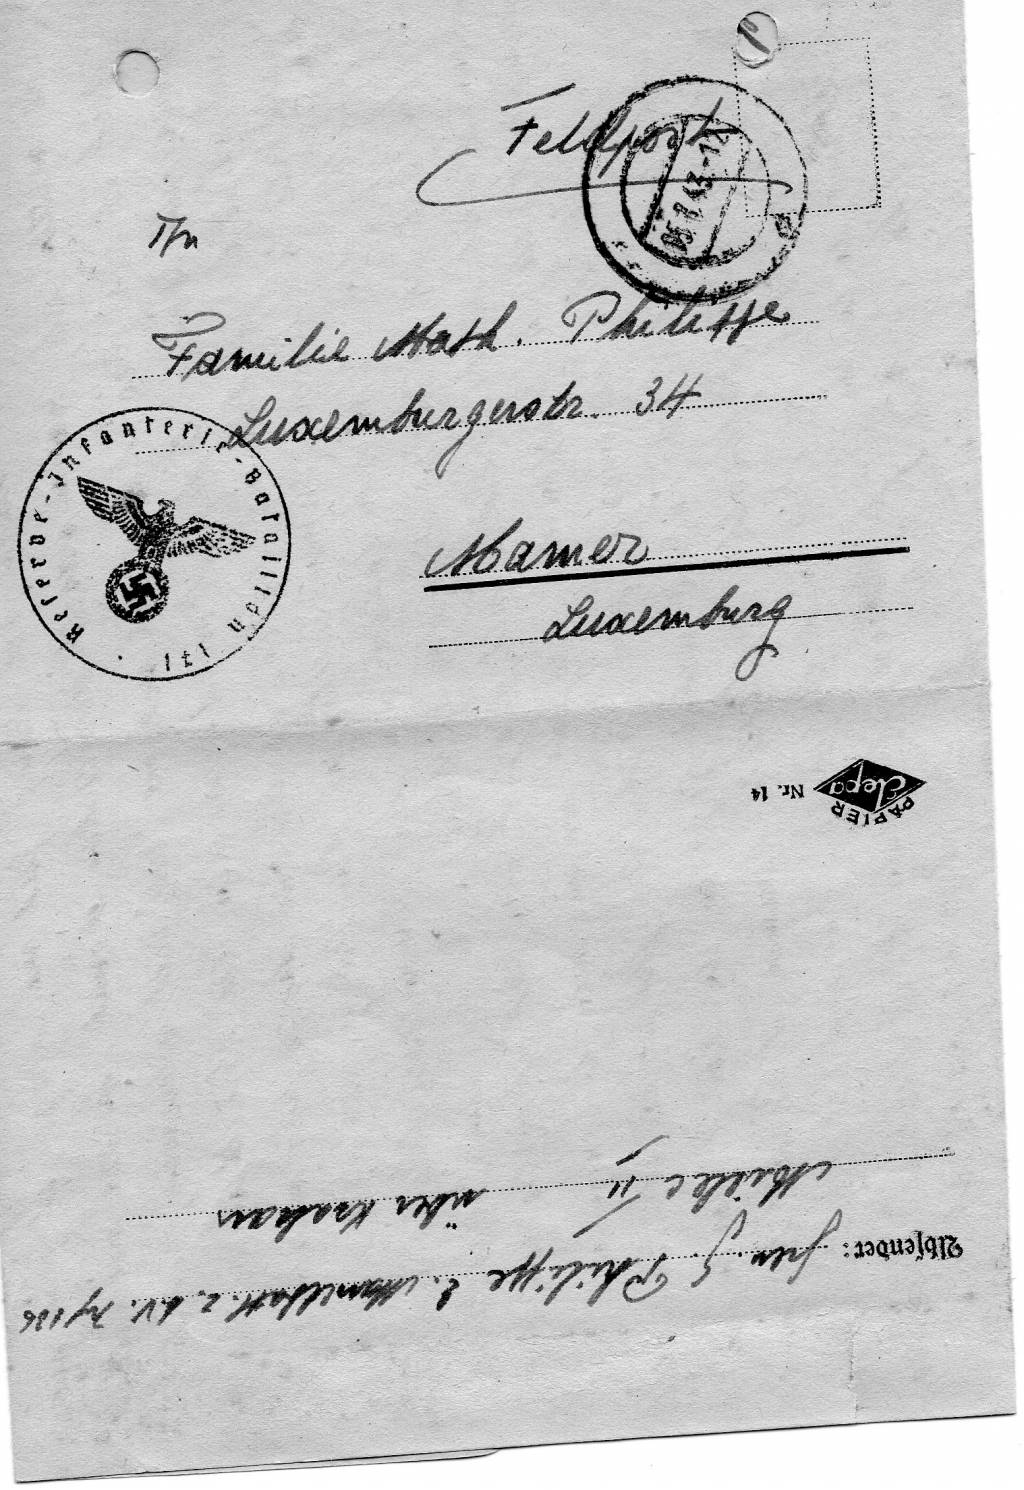 Feldpost
05.1.43-12
An
Familie Math. Philippe
Luxemburgerstr. 34
Reserve-Infanterie-Bataillon 171
Mamer
Luxemburg
PAPIER
Elepa Nr. 14
Absender: Gren. J. Philippe 2. Marschbatl. z.b.V.
Mielec II über Krakau